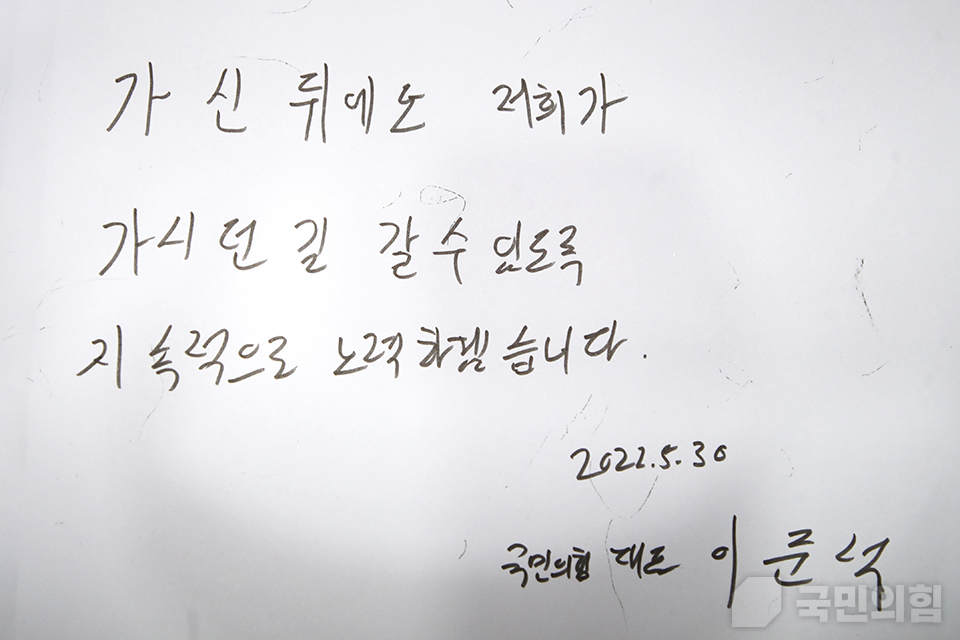 가신 뒤에도 저희가
가시던 길 갈 수 있도록
지속적으로 노력하겠습니다.
2022.5.30
국민의힘 대표 이준석
국민의힘